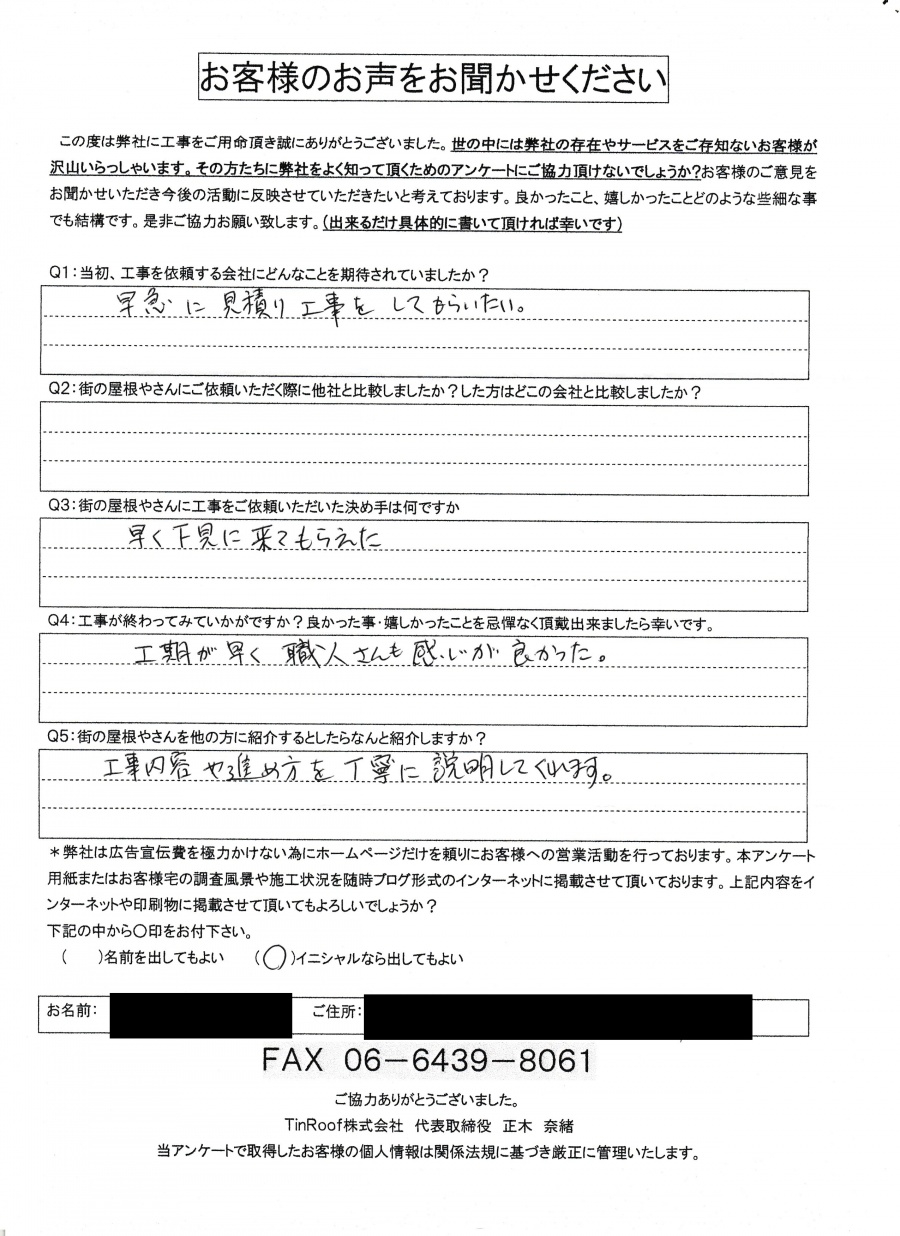 お客様のお声をお聞かせください
この度は弊社に工事をご用命頂き誠にありがとうございました。世の中には弊社の存在やサービスをご存知ないお客様が
沢山いらっしゃいます。その方たちに弊社をよく知って頂くためのアンケートにご協力頂けないでしょうか?お客様のご意見を
お聞かせいただき今後の活動に反映させていただきたいと考えております。良かったこと、嬉しかったことどのような些細な事
でも結構です。是非ご協力お願い致します。(出来るだけ具体的に書いて頂ければ幸いです)
Q1:当初、工事を依頼する会社にどんなことを期待されていましたか?
早急に見積り工事をしてもらいたい。
Q2:街の屋根やさんにご依頼いただく際に他社と比較しましたか?した方はどこの会社と比較しましたか?
Q3:街の屋根やさんに工事をご依頼いただいた決め手は何ですか
早く下見に来てもらえた
Q4:工事が終わってみていかがですか?良かった事・嬉しかったことを忌憚なく頂戴出来ましたら幸いです。
工期が早く 職人さんも感じが良かった。
Q5:街の屋根やさんを他の方に紹介するとしたらなんと紹介しますか?
工事内容や進め方を丁寧に説明してくれます。
*弊社は広告宣伝費を極力かけない為にホームページだけを頼りにお客様への営業活動を行っております。本アンケート
用紙またはお客様宅の調査風景や施工状況を随時ブログ形式のインターネットに掲載させて頂いております。上記内容をイ
ンターネットや印刷物に掲載させて頂いてもよろしいでしょうか?
下記の中から〇印をお付下さい。
( )名前を出してもよい (〇)イニシャルなら出してもよい
お名前: ご住所:
FAX 06-6439-8061
ご協力ありがとうございました。
TinRoof株式会社 代表取締役 正木 奈緒
当アンケートで取得したお客様の個人情報は関係法規に基づき厳正に管理いたします。